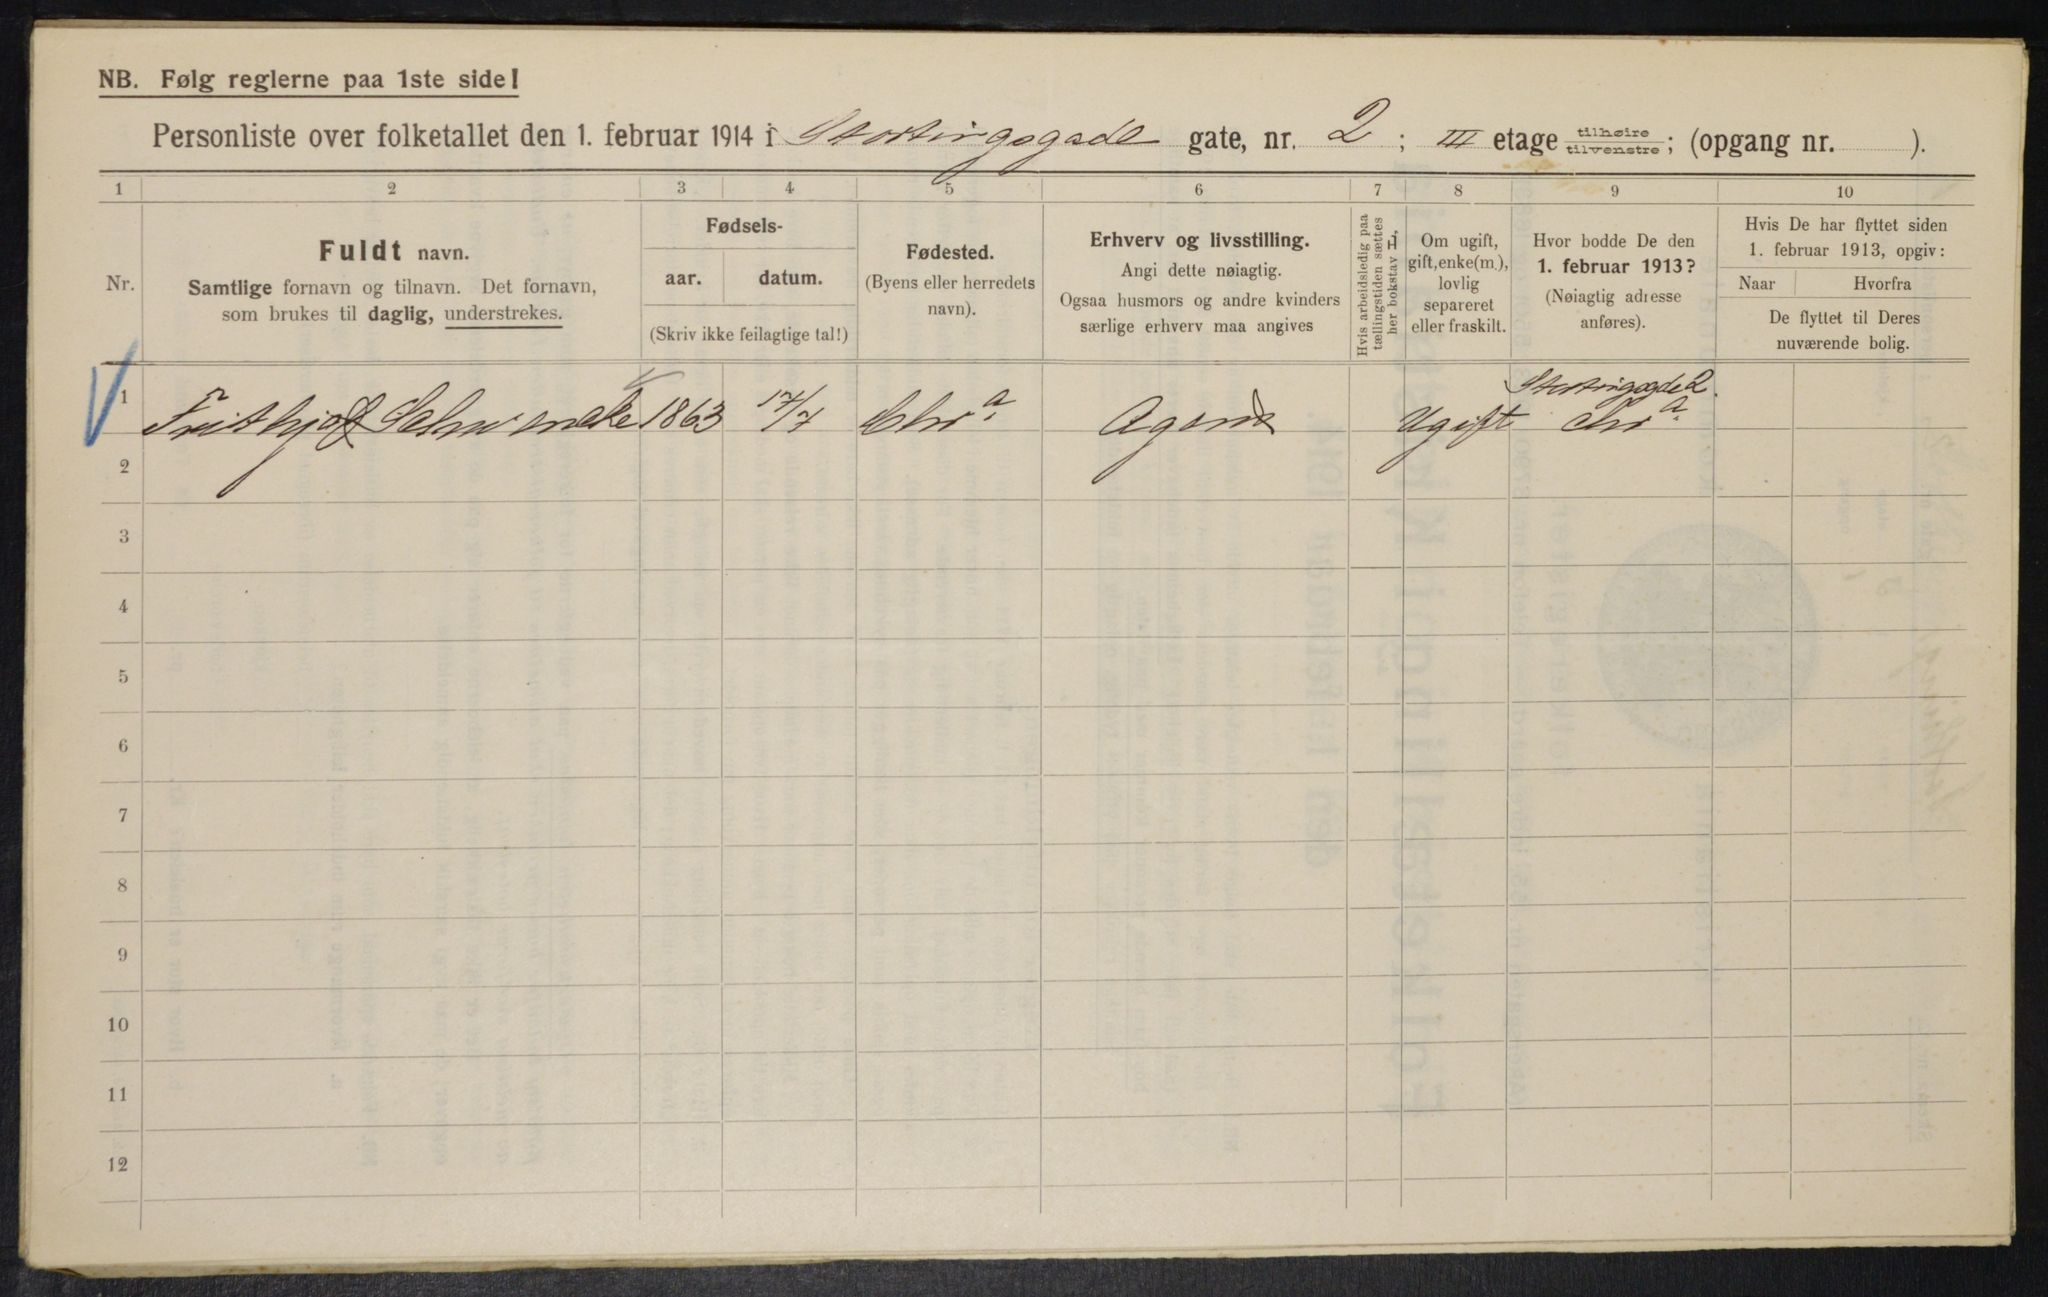 NB. Følg reglerne paa 1ste side!
Personliste over folketallet den 1. februar 1914 i Stortingsgade gate, nr. 2 ; III etage tilhøire/tilvenstre; (opgang nr. ).
1 2 3 4 5 6 7 8 9 10
Nr.
Fuldt navn.
Samtlige fornavn og tilnavn. Det fornavn,
som brukes til daglig, understrekes.
Fødsels-
aar. datum.
(Skriv ikke feilagtige tal!)
Fødested.
(Byens eller herredets
navn).
Erhverv og livsstilling.
Angi dette nøiagtig.
Ogsaa husmors og andre kvinders
særlige erhverv maa angives
Hvis arbeidsledig paa
tællingstiden sættes
her bokstav L.
Om ugift,
gift, enke(m.),
lovlig
separeret
eller fraskilt.
Hvor bodde De den
1. februar 1913?
(Nøiagtig adresse
anføres).
Hvis De har flyttet siden
1. februar 1913, opgiv:
Naar Hvorfra
De flyttet til Deres
nuværende bolig.
Stortingsgde 2.
1 Frithjof Schwencke 1863 17/7 Chr a. Agent Ugift Chr a.
2
3
4
5
6
7
8
9
10
11
12